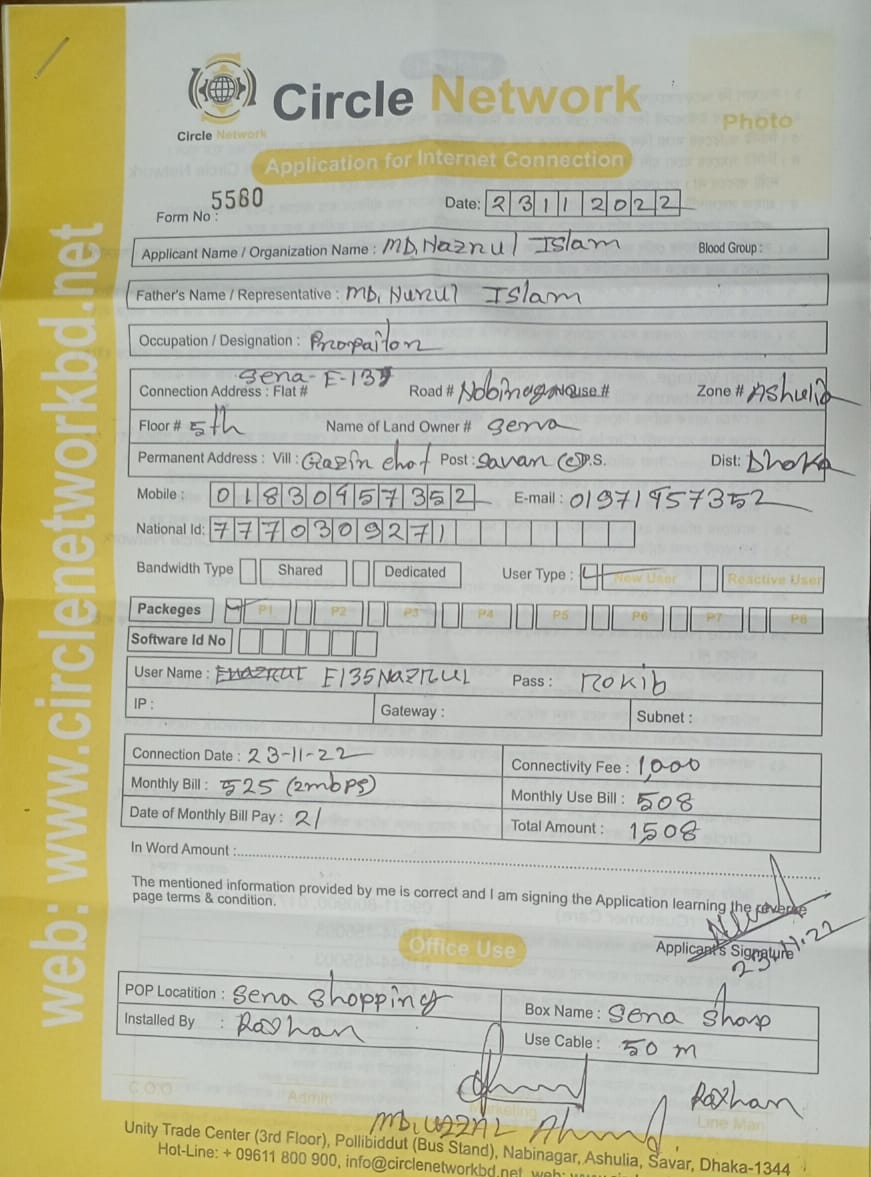 web: www.circlenetworkbd.net
Circle Network
Circle Network
Photo
Application for Internet Connection
Form No : 5580
Date: 23112022
Applicant Name / Organization Name : MD. Nazrul Islam Blood Group :
Father's Name / Representative : MD. Nurul Islam
Occupation / Designation :
Connection Address : Flat # Sena- E-135 Road # Nobinagar House # Zone # Ashulia
Floor # 5th Name of Land Owner # Sena
Permanent Address : Vill : Post : Savar P.S. Dist: Dhaka
Mobile : 01830957352 E-mail : 01971957352
National Id: 7770309271
Bandwidth Type Shared Dedicated User Type : New User Reactive User
Packeges P1 P2 P3 P4 P5 P6 P7 P8
Software Id No
User Name : E135NAZRUL Pass : rokib
IP : Gateway : Subnet :
Connection Date : 23-11-22 Connectivity Fee : 1,000
Monthly Bill : 525 (2mbps) Monthly Use Bill : 508
Date of Monthly Bill Pay : 21 Total Amount : 1508
In Word Amount :
The mentioned information provided by me is correct and I am signing the Application learning the reverse
page terms & condition.
Applicant's Signature
23-11-22
Office Use
POP Locatition : Sena Shopping Box Name : Sena Shop
Installed By : Raxhan Use Cable : 50 m
C.O.O Admin Marketing Line Man
Raxhan
Unity Trade Center (3rd Floor), Pollibiddut (Bus Stand), Nabinagar, Ashulia, Savar, Dhaka-1344
Hot-Line: + 09611 800 900, info@circlenetworkbd.net, web: